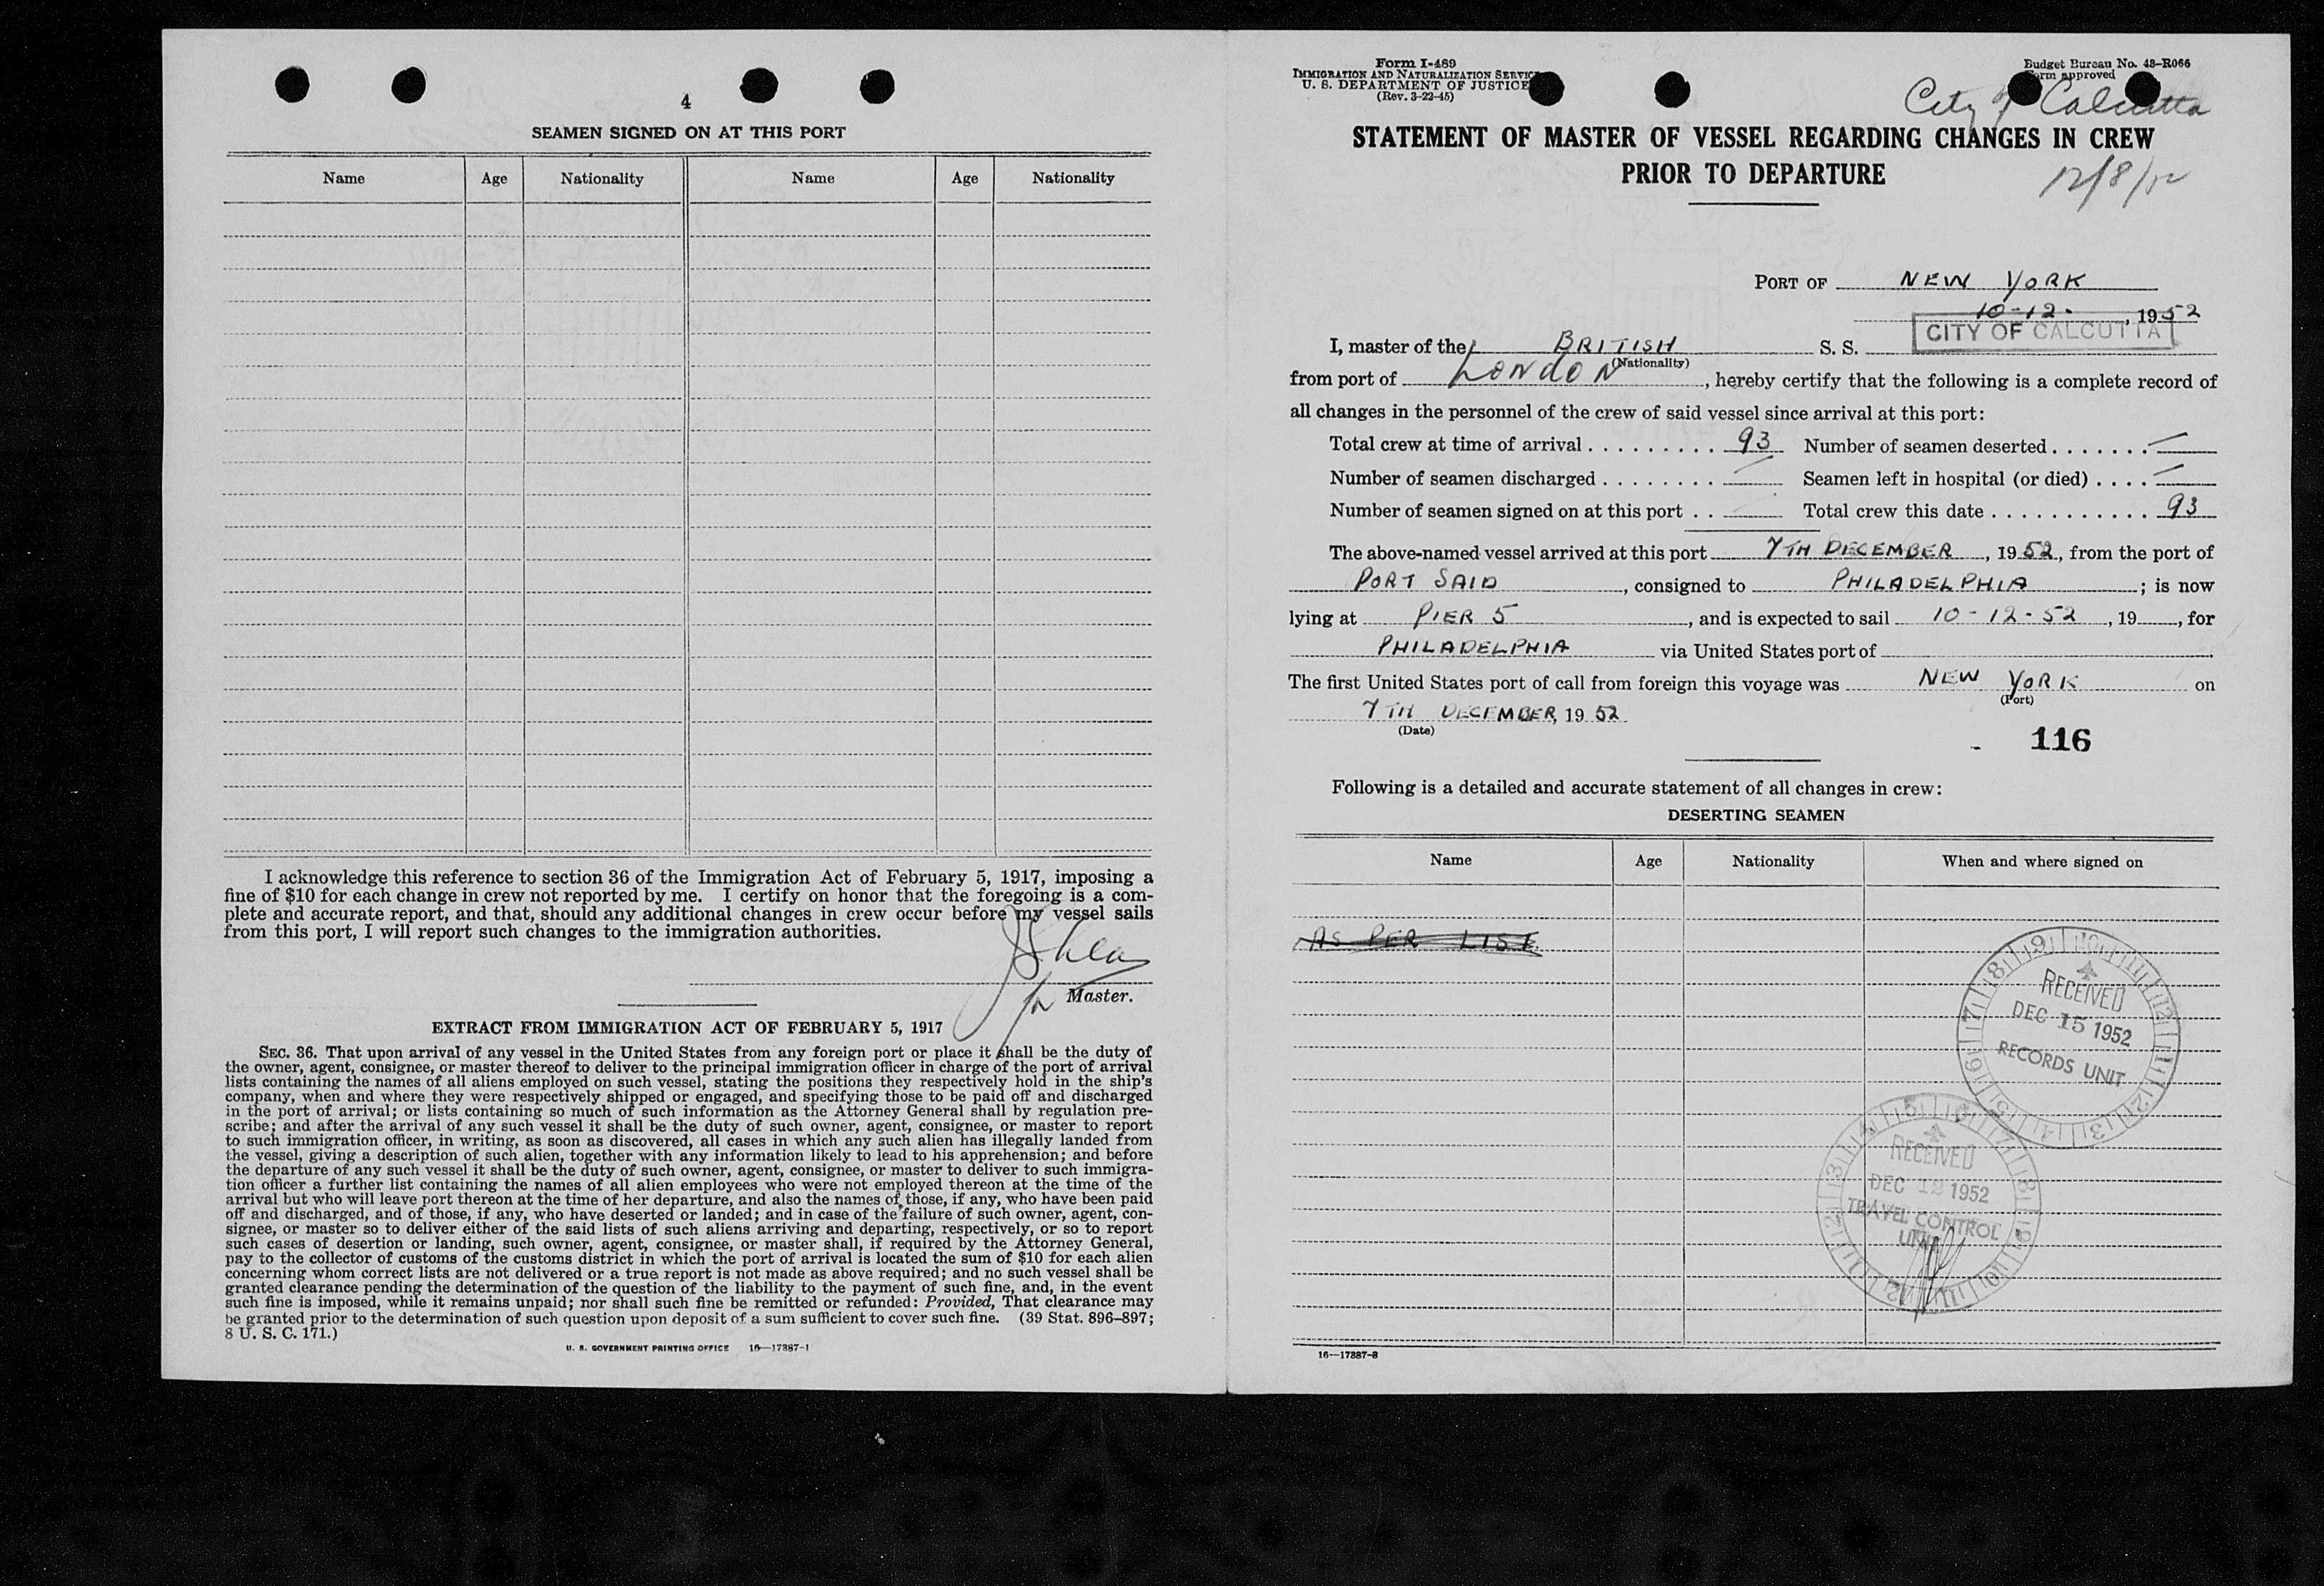 4
SEAMEN SIGNED ON AT THIS PORT
Name Age Nationality Name Age Nationality
I acknowledge this reference to section 36 of the Immigration Act of February 5, 1917, imposing a
fine of $10 for each change in crew not reported by me. I certify on honor that the foregoing is a com-
plete and accurate report, and that, should any additional changes in crew occur before my vessel sails
from this port, I will report such changes to the immigration authorities.
Master.
EXTRACT FROM IMMIGRATION ACT OF FEBRUARY 5, 1917
SEC. 36. That upon arrival of any vessel in the United States from any foreign port or place it shall be the duty of
the owner, agent, consignee, or master thereof to deliver to the principal immigration officer in charge of the port of arrival
lists containing the names of all aliens employed on such vessel, stating the positions they respectively hold in the ship's
company, when and where they were respectively shipped or engaged, and specifying those to be paid off and discharged
in the port of arrival; or lists containing so much of such information as the Attorney General shall by regulation pre-
scribe; and after the arrival of any such vessel it shall be the duty of such owner, agent, consignee, or master to report
to such immigration officer, in writing, as soon as discovered, all cases in which any such alien has illegally landed from
the vessel, giving a description of such alien, together with any information likely to lead to his apprehension; and before
the departure of any such vessel it shall be the duty of such owner, agent, consignee, or master to deliver to such immigra-
tion officer a further list containing the names of all alien employees who were not employed thereon at the time of the
arrival but who will leave port thereon at the time of her departure, and also the names of those, if any, who have been paid
off and discharged, and of those, if any, who have deserted or landed; and in case of the failure of such owner, agent, con-
signee, or master so to deliver either of the said lists of such aliens arriving and departing, respectively, or so to report
such cases of desertion or landing, such owner, agent, consignee, or master shall, if required by the Attorney General,
pay to the collector of customs of the customs district in which the port of arrival is located the sum of $10 for each alien
concerning whom correct lists are not delivered or a true report is not made as above required; and no such vessel shall be
granted clearance pending the determination of the question of the liability to the payment of such fine, and, in the event
such fine is imposed, while it remains unpaid; nor shall such fine be remitted or refunded: Provided, That clearance may
be granted prior to the determination of such question upon deposit of a sum sufficient to cover such fine. (39 Stat. 896–897;
8 U. S. C. 171.)
U. S. GOVERNMENT PRINTING OFFICE 16—17387-1
Form I-489
IMMIGRATION AND NATURALIZATION SERVICE
U. S. DEPARTMENT OF JUSTICE
(Rev. 3-22-45)
Budget Bureau No. 43–R066
Form approved
City of Calcutta
STATEMENT OF MASTER OF VESSEL REGARDING CHANGES IN CREW
PRIOR TO DEPARTURE
12/8/52
PORT OF NEW YORK
10-12-, 1952
I, master of the BRITISH S. S. CITY OF CALCUTTA
(Nationality)
from port of LONDON, hereby certify that the following is a complete record of
all changes in the personnel of the crew of said vessel since arrival at this port:
Total crew at time of arrival . . . . . . . . . 93 Number of seamen deserted . . . . . . . —
Number of seamen discharged . . . . . . . . — Seamen left in hospital (or died) . . . . —
Number of seamen signed on at this port . . Total crew this date . . . . . . . . . . . 93
The above-named vessel arrived at this port 7TH DECEMBER, 1952, from the port of
PORT SAID, consigned to PHILADELPHIA; is now
lying at PIER 5, and is expected to sail 10-12-52, 19, for
PHILADELPHIA via United States port of
The first United States port of call from foreign this voyage was NEW YORK on
(Port)
7TH DECEMBER, 1952
(Date)
116
Following is a detailed and accurate statement of all changes in crew:
DESERTING SEAMEN
Name Age Nationality When and where signed on
AS PER LIST
RECEIVED
DEC 15 1952
RECORDS UNIT
RECEIVED
DEC 1952
TRAVEL CONTROL
UNIT
16—17387-3